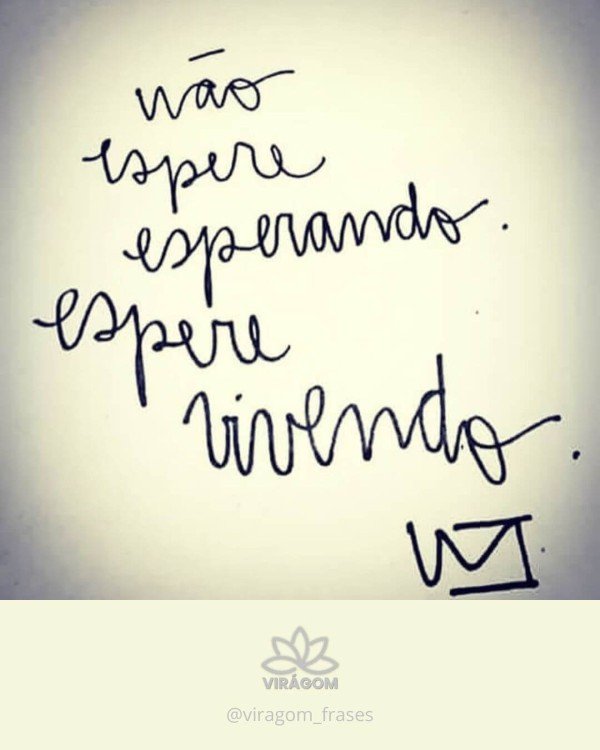 não
espere
esperando.
espere
vivendo.
VIRÁGOM
@viragom_frases